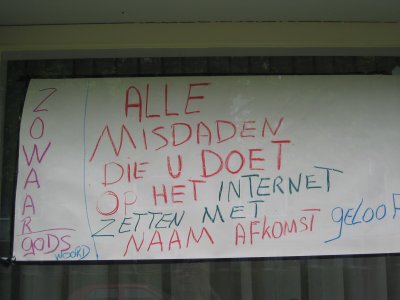 ZOWAAR
gODS
WOORD
ALLE
MISDADEN
DIE U DOET
OP HET INTERNET
ZETTEN MET
NAAM AFKOMST gELOOF